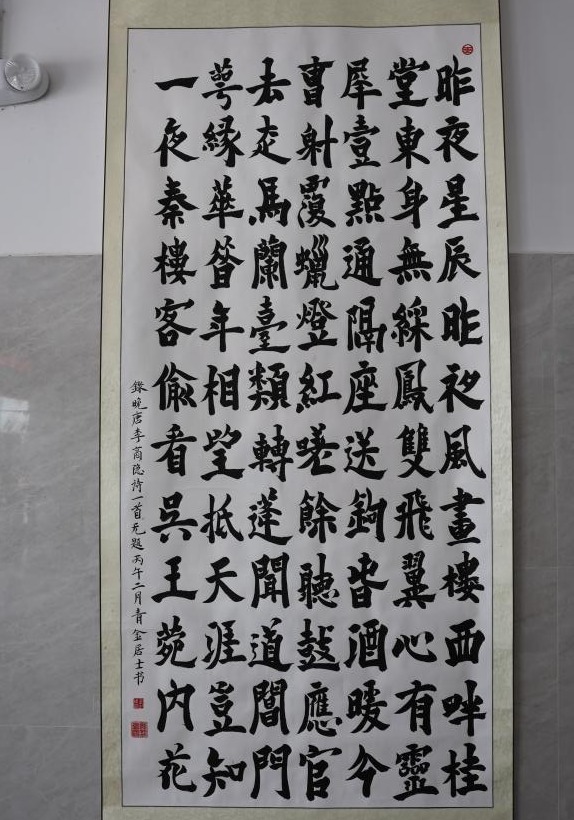 昨夜星辰昨夜風畫樓西畔桂
堂東身無綵鳳雙飛翼心有靈
犀壹點通隔座送鉤春酒暖分
曹射覆蠟燈紅嗟餘聽鼓應官
去走馬蘭臺類轉蓬聞道閶門
萼緑華昔年相望抵天涯豈知
一夜秦樓客偷看吳王苑内花
錄晚唐李商隐詩一首无题丙午二月青金居士书